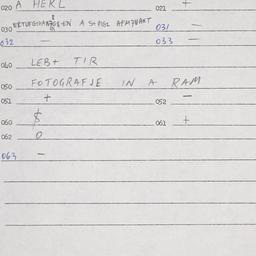 020 A HERL 021 +
030 A SPIGL APARTJAKT 031 —
032 — 033 —
040 LEB+ TIR
050 FOTOGRAFJE IN A RAM
051 + 052 —
060 $ 061 +
062 0
063 —